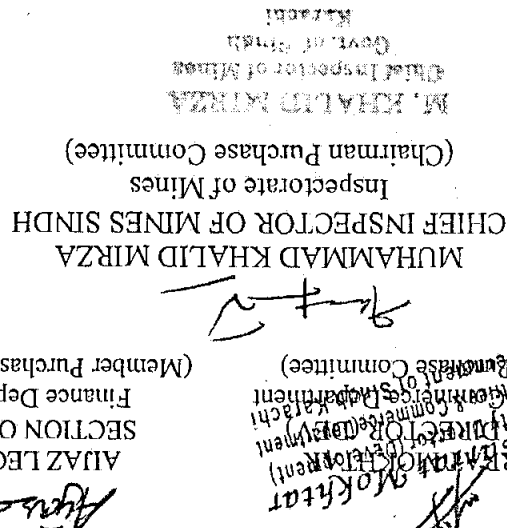 AIJAZ LEG
SECTION O
Finance Dep
(Member Purchas
Mokhtar
DIRECTOR
Commerce Department
Purchase Committee)
MUHAMMAD KHALID MIRZA
CHIEF INSPECTOR OF MINES SINDH
Inspectorate of Mines
(Chairman Purchase Committee)
M. KHALID MIRZA
Chief Inspector of Mines
Govt. of Sindh
Karachi